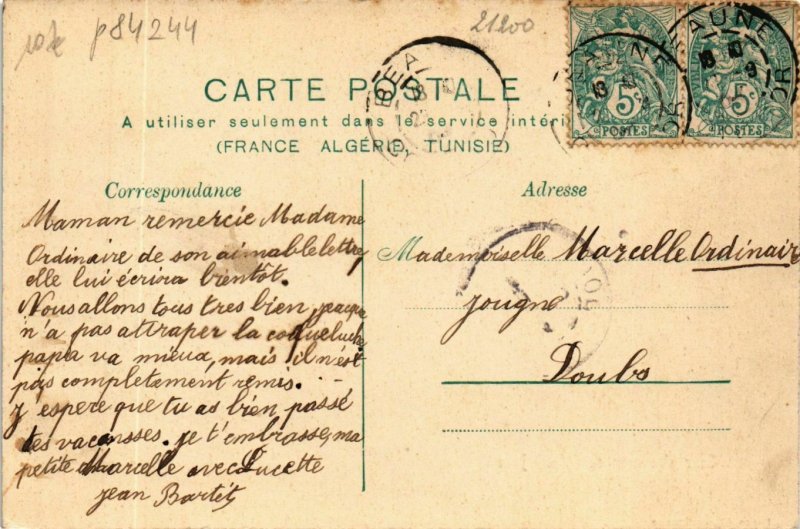 10k p84244
21200
CARTE POSTALE
A utiliser seulement dans le service intéri
(FRANCE ALGÉRIE, TUNISIE)
BEA
BEAUNE
AUNE
D'OR
5
POSTES
5
POSTES
Correspondance
Maman remercie Madame
Ordinaire de son aimable lettre,
elle lui écrira bientôt.
Nous allons tous tres bien,
n'a pas attraper la coqueluche
papa va mieux, mais il n'est
pas completement remis.
j'espere que tu as bien passé
tes vacansses. je t'embrasse, ma
petite Marcelle avec Lucette
jean
Adresse
Mademoiselle Marcelle Ordinair
jougne
Doubs